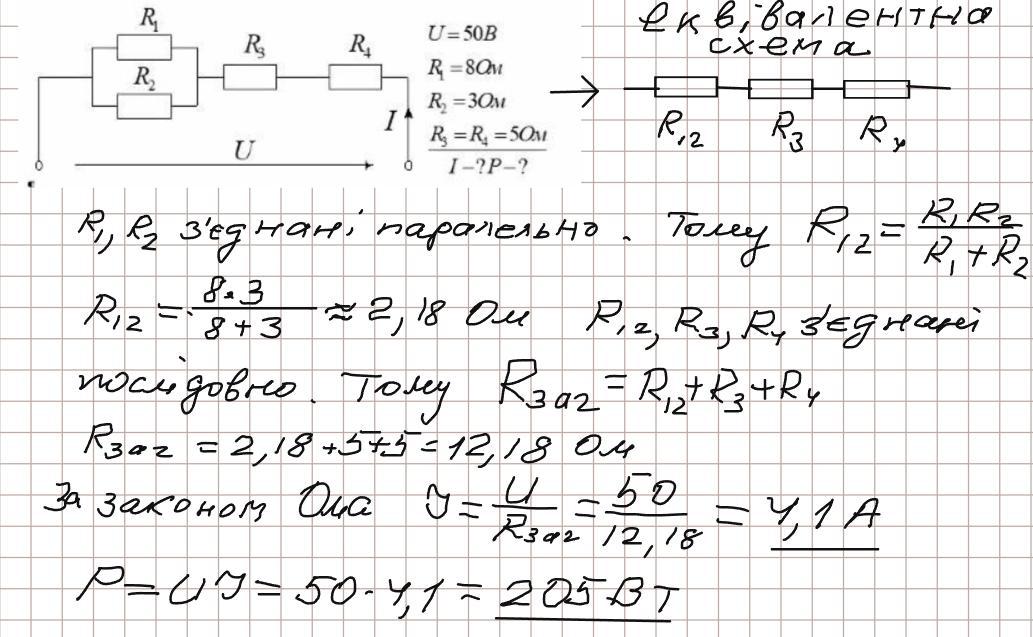 R₁
R₂
R₃
R₄
I
U
U=50В
R₁=8Ом
R₂=3Ом
R₃=R₄=5Ом
I-?P-?
еквівалентна
схема
R₁₂ R₃ R₄
R₁, R₂ з'єднані паралельно. Тому R₁₂ = R₁R₂ / R₁+R₂
R₁₂ = 8·3 / 8+3 ≈ 2,18 Ом R₁₂, R₃, R₄ з'єднані
послідовно. Тому Rзаг = R₁₂+R₃+R₄
Rзаг = 2,18+5+5=12,18 Ом
За законом Ома I = U / Rзаг = 50 / 12,18 = 4,1 А
P=UI=50·4,1=205 Вт